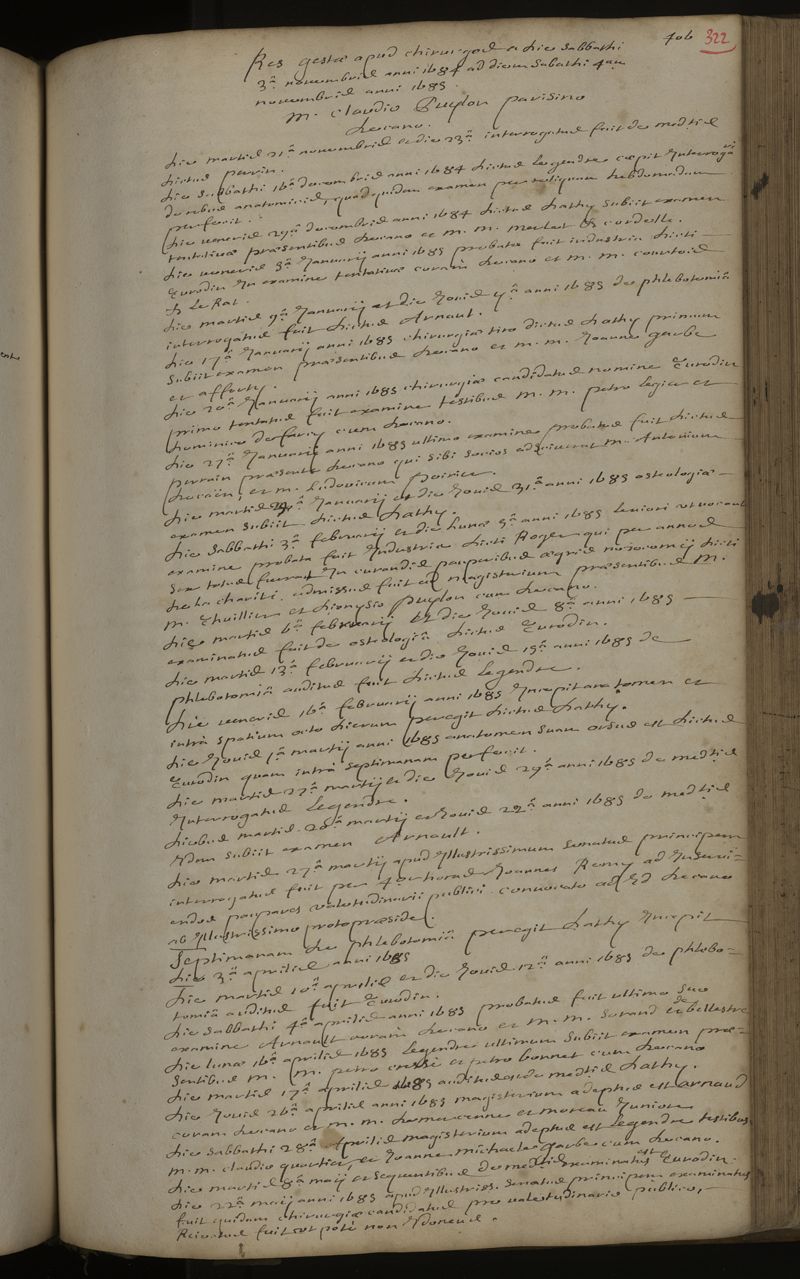 406 322
Res gestæ apud chirurgos a die sabbathi
3ª novembris anni 1684 ad diem sabathi 4am
novembris anni 1685.
M. Claudio Puylon parisino
decano.
die martis 21ª novembris et die 23ª interrogatus fuit de meditiis
dictus perrin.
die sabbathi 16ª decembris anni 1684 dictus Legendre cæpit
de rebus anatomicis, quod quidem examen per reliquam hebdomadam
perfecit.
die veneris 29ª decembris anni 1684 dictus Hathy subiit examen
tentativæ præsentibus decano et M. M. Merlet et Cordelle.
die veneris 5ª Januarij anni 1685 probata fuit industria dicti
Eurodin in examine tentativæ coram decano et M. M. Courtois
et Le Rat.
die martis 9ª Januarij et die Jovis anni 1685 de phlebotomiâ
interrogatus fuit dictus Arnaut.
die 17ª Januarij anni 1685 chirurgiæ tiro dictus Hathy primum
subiit examen præsentibus decano et M. M. Joanne Garbe
et afforty.
die 20ª Januarij anni 1685 chirurgiæ candidatus nomine Eurodin
primo tentatus fuit examine testibus M. M. petro Legier et
dominico de farcy cum decano.
die 27ª Januarij anni 1685 ultimo examine probatus fuit dictus
perrain præsente decano qui sibi socios adsciverat M. Antonium
et M. Ludovicum poirier.
die martis Januarij et die Jovis 31ª anni 1685 osteologiæ
examen subiit dictus Hathy.
die sabbathi 3ª februarij et die lunæ 5ª anni 1685 leviori ut vocant
examine probata fuit industria dicti Roger qui per annos
sex totus fuerat in curandis pauperibus ægris nosocomij dicti
de la charité. admissus fuit ad magisterium præsentibus M.
M. Thuillier et Dionysio Puylon cum decano.
die martis 6ª februarij et die Jovis 8ª anni 1685
examinatus fuit de osteologiâ dictus Eurodin.
die martis 13ª februarij et die Jovis 15ª anni 1685 de
phlebotomiâ auditus fuit dictus Legendre.
die veneris 16ª februarij anni 1685 incepit anatomen et
intrà spatium octo dierum peregit dictus Hathy.
die Jovis 1ª martij anni 1685 anatomen suam orsus est dictus
Eurodin quam intrà septimanam perfecit.
die martis 27ª martij et die Jovis 29ª anni 1685 de meditiis
interrogatus Legendre.
diebus martis 20ª martij et Jovis 22ª anni 1685 de meditiis
idem subiit examen Arnault.
die martis 27ª martij apud illustrissimum senatus principem
interrogatus fuit per 4or horas Joannes Remy ad inservi-
endos pauperes valetudinarii publici. convocato ad id decano
ab illustrissimo protopræside.
Septimanam de phlebotomiâ peregit Hathy incepit
die 3ª aprilis anni 1685
die martis 10ª aprilis et die Jovis 12ª anni 1685 de phlebo-
tomiâ auditus fuit Eurodin.
die sabbathi 4ª aprilis anni 1685 probatus fuit ultimo suo
examine Arnault coram decano et M. M. Morand et de bellestre
die lunæ 16ª aprilis 1685 Legendre ultimum subiit examen præ-
sentibus M. M. petro cressé et petro bonnet cum decano
die martis 17ª aprilis 1685 auditus de meditiis Hathy.
die Jovis 26ª aprilis anni 1685 magisterium adeptus est Arnaud
coram decano et M. M. et moreau Juniore
die sabbathi 28ª Aprilis magisterium adeptus est Legendre testibus
M. M. claudio quartier, et Joanne michaele garbe cum decano.
die martis 8ª maij et sequentibus de meditiis examinatus est Eurodin.
die 22ª maij anni 1685 apud illustriss. senatus principem examinatus
fuit quidam chirurgiæ candidatus pro valetudinario publico,
Reiectus fuit ut potè non idoneus.